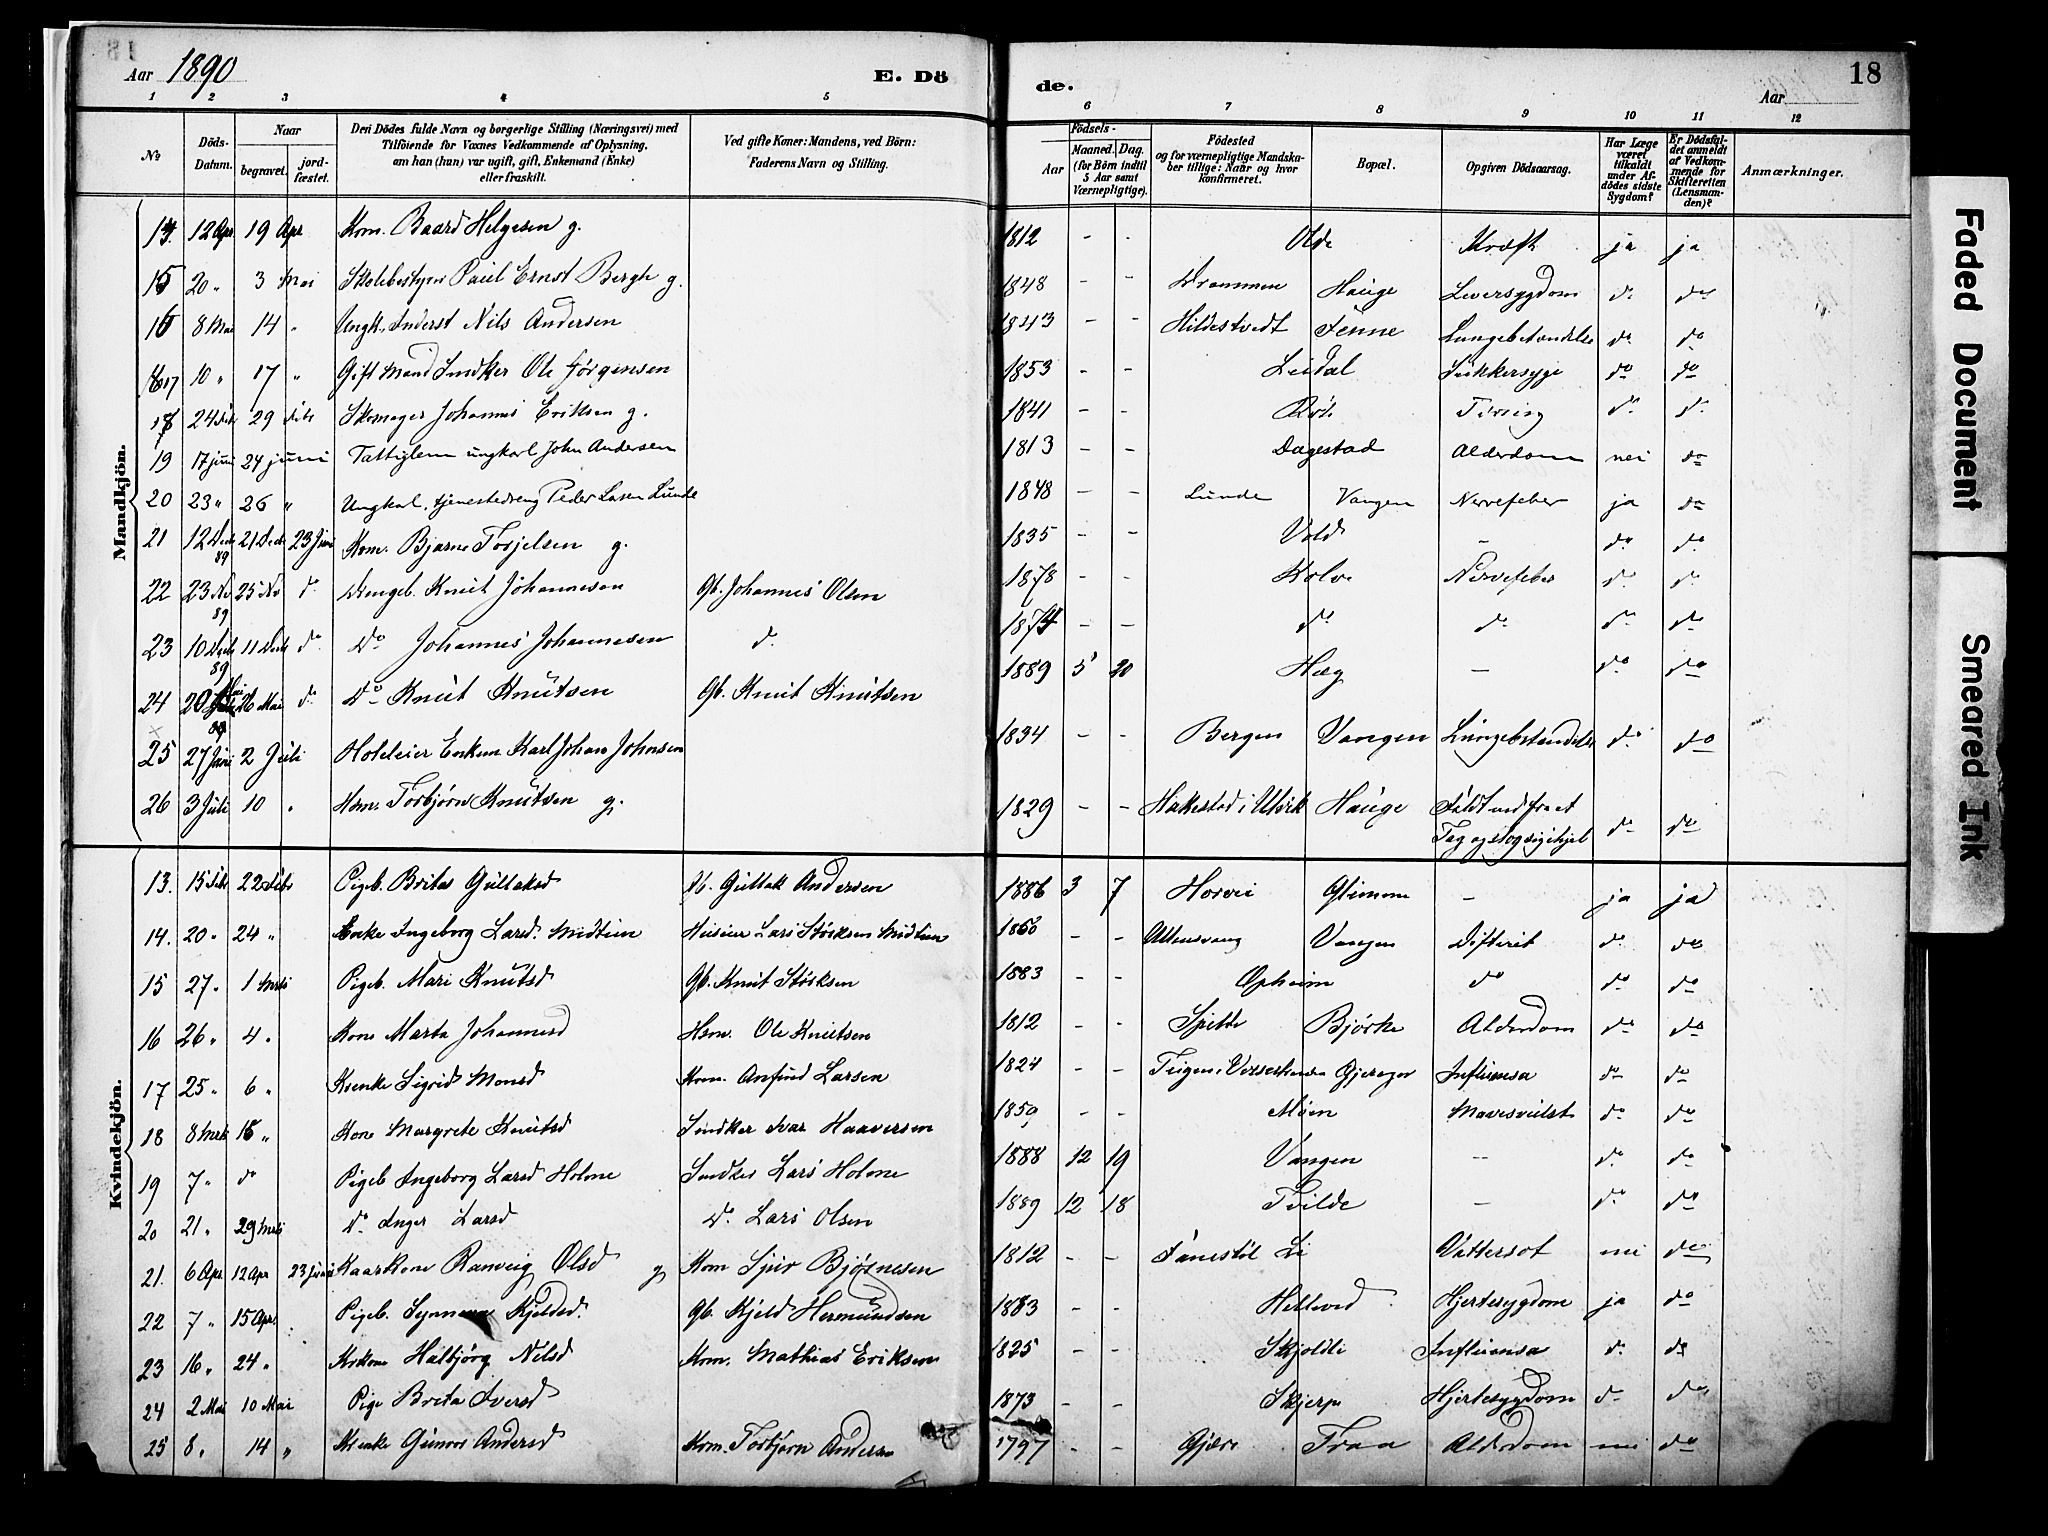 18
Aar 1890
E. Dö
de.
Aar
18
1 2 3 4 5 6 7 8 9 10 11 12
No
Döds-Datum.
Naar
begravet.
jord-fæstet.
Den Dödes fulde Navn og borgerlige Stilling (Næringsvei) med
Tilföiende for Voxnes Vedkommende af Oplysning,
om han (hun) var ugift, gift, Enkemand (Enke)
eller fraskilt.
Ved gifte Koner: Mandens, ved Börn:
Faderens Navn og Stilling.
Födsels-
Aar
Maaned. Dag.
(for Börn indtil
5 Aar samt
Værnepligtige).
Födested
og for værnepligtige Mandska-
ber tillige: Naar og hvor
konfirmeret.
Bopæl.
Opgiven Dödsaarsag.
Har Læge
været
tilkaldt
under Af-
dödes sidste
Sygdom?
Er Dödsfal-
det anmeldt
af Vedkom-
mende for
Skifteretten
(Lensman-
den)?
Anmærkninger.
Mandkjön.
14. 12 Apr 19 Apr Kom. Baard Helgesen g. 1812 - - Olde Kræft ja ja
15 20 " 3 Mai Skolebestyrer Paul Ernst Bergh g. 1848 - - Drammen Hauge Leversygdom do do
16 8 Mai 14 " Ungk. Inderst Nils Andersen 1843 - - Hildestvedt Tenne Lungebetændelse do do
17 10 " 17 " Gift Mand Smdker Ole Jörgensen 1853 - - Leidal Sukkersyge do do
18 24 Feb 29 Feb Skomager Johannes Eriksen g. 1841 - - Tæring do do
19 17 juni 24 juni Fattiglem ungkarl John Andersen 1813 - - Dagestad Alderdom nei do
20 23 " 26 " Ungkarl, tjenestedreng Peder Larsen Lunde 1848 - - Lunde Vangen Nervefeber ja do
21 12 Decb 89 21 Decb 23 Juni Kom. Bjarne Torjelsen g. 1835 - - Vold - do do
22 23 Nv 89 25 Nv do Drengeb. Knut Johannesen Gb. Johannes Olsen 1878 - - Kolve Nervefeber do do
23 10 Decb 89 11 Decb do Do Johannes Johannesen do 1874 - - do do do do
24 20 Mai 89 26 Mai do Do Knut Knutsen Gb. Knut Knutsen 1889 5 20 Hæg - do do
25 27 Juni 2 Juli Hoteleier Enkem Karl Johan Johnsen 1834 - - Bergen Vangen Lungebetændelse do do
26 3 Juli 10 " Hsm. Torbjørn Knutsen g. 1829 - - Hakestad i Ulvik Hauge Faldt ned fra et
Tag og slog sig ihjel do do
Kvindekjön.
13. 15 Feb 22 Febr Pigeb. Brita Gullaksd Gullak Andersen 1886 3 7 Horvei Glimme - ja ja
14. 20 " 24 " Enke Ingeborg Larsd. Midtun Huseier Lars Störksen Midtun 1860 - - Ullensvang Vangen Difterit do do
15 27 " 1 Mrts Pigeb. Mari Knutsd Gb. Knut Störksen 1883 - - Opheim do do do
16 26 " 4 " Kone Marta Johannesd Hsm. Ole Knutsen 1812 - - Spilde Bjørke Alderdom do do
17 25 " 6 " Kaenke Sigrid Monsd Kom. Anfind Larsen 1824 - - Gjerager Influensa do do
18 8 Mrts 15 " Kone Margrete Knutsd Smdker Ivar Haaversen 1859 - - Möen Mavesvulst do do
19 7 " do Pigeb Ingeborg Larsd Holme Smdker Lars Holme 1888 12 19 Vangen - do do
20 21 " 29 Mrts Do Inger Larsd Do. Lars Olsen 1889 12 18 Tvilde - do do
21. 6 Apr 12 Apr 23 Juni Kaarkone Ranveig Olsd g Kom Sjur Bjørnesen 1812 - - Fanestöl Li Vattersot nei do
22 7 " 15 Apr. Pigeb. Synneva Kjeldsd. Gb. Kjeld Hermundsen 1883 - - Helleved Hjertesygdom ja do
23 16 " 24 " Krkone Halbjörg Nilsd Krm. Mathias Eriksen 1825 - - Skjoldli Influensa do do
24 2 Mai 10 Mai Pige Brita Iversd 1873 - - Skjerpe Hjertesygdom do do
25 8 " 14 " Krenke Gunvor Andersd Krm. Torbjørn Andersen 1797 - - Gjære Fraa Alderdom nei do
Faded Document
Smeared Ink